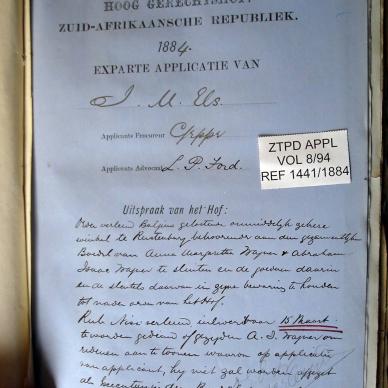 HOOG GERECHTSHOF.
ZUID-AFRIKAANSCHE REPUBLIEK.
1884.
EXPARTE APPLICATIE VAN
J. M. Els.
Applicants Procureur
Applicants Advocaat L. P. Ford.
ZTPD APPL
VOL 8/94
REF 1441/1884
Uitspraak van het Hof:
Order verleen Baljuw gelastende onmiddelijk zekere
winkel te Rustenburg behoorende aan den gezamentlijken
Boedel van Anna Margaretha Wapner & Abraham
Isaac Wapner te sluiten en de goederen daarin
en de sleutels daarvan in zyne bewaring te houden
tot nader order van het Hof.
Rule Nisi verleen 15 Maart
te worden gediend of gezyden A. I. Wapner om
redenen aan te toonen waarom op applicatie
van applicant, hy niet zal worden afgezet
als